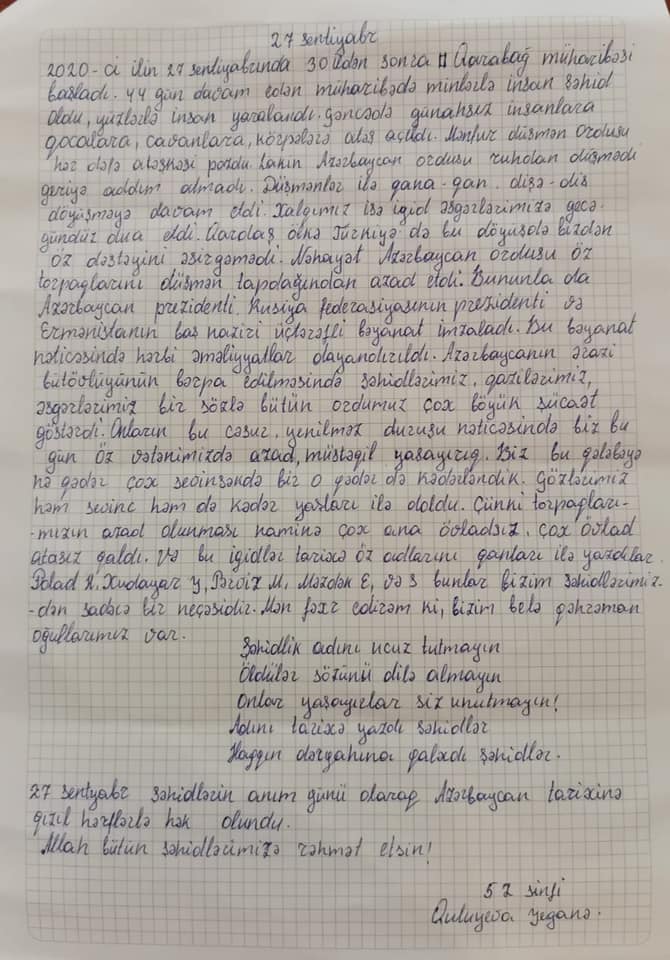 27 sentiyabr
2020-ci ilin 27 sentiyabrında 30 ildən sonra II Qarabağ müharibəsi
başladı. 44 gün davam edən müharibədə minlərlə insan şəhid
oldu, yüzlərlə insan yaralandı. Gəncədə günahsız insanlara
qocalara, cavanlara, körpələrə atəş açıldı. Mənfur düşmən ordusu
hər dəfə atəşkəsi pozdu. Lakin Azərbaycan ordusu ruhdan düşmədi
geriyə addım atmadı. Düşmənlər ilə qana-qan, dişə-diş
döyüşməyə davam etdi. Xalqımız isə igid əsgərlərimizə gecə-
gündüz dua etdi. Qardaş ölkə Türkiyə də bu döyüşdə bizdən
öz dəstəyini əsirgəmədi. Nəhayət Azərbaycan ordusu öz
torpaqlarını düşmən tapdağından azad etdi. Bununla da
Azərbaycan prezidenti, Rusiya federasiyasının prezidenti və
Ermənistanın baş naziri üçtərəfli bəyanat imzaladı. Bu bəyanat
nəticəsində hərbi əməliyyatlar dayandırıldı. Azərbaycanın ərazi
bütövlüyünün bərpa edilməsində şəhidlərimiz, qazilərimiz,
əsgərlərimiz bir sözlə bütün ordumuz çox böyük şücaət
göstərdi. Onların bu cəsur, yenilməz duruşu nəticəsində biz bu
gün öz vətənimizdə azad, müstəqil yaşayırıq. Biz bu qələbəyə
nə qədər çox sevinsəkdə bir o qədər də kədərləndik. Gözlərimiz
həm sevinc həm də kədər yaşları ilə doldu. Çünki torpaqları-
-mızın azad olunması naminə çox ana övladsız, çox övlad
atasız qaldı. Və bu igidlər tarixə öz adlarını qanları ilə yazdılar.
Polad H, Xudayar Y, Pərviz M, Məzdək E, və s bunlar bizim şəhidlərimiz-
-dən sadəcə bir neçəsidir. Mən fəxr edirəm ki, bizim belə qəhrəman
oğullarımız var.
Şəhidlik adını ucuz tutmayın
Öldülər sözünü dilə almayın
Onlar yaşayırlar siz unutmayın!
Adını tarixə yazdı şəhidlər
Haqqın dərgahına qalxdı şəhidlər.
27 sentyabr şəhidlərin anım günü olaraq Azərbaycan tarixinə
qızıl hərflərlə həkk olundu.
Allah bütün şəhidlərimizə rəhmət etsin!
5 Z sinfi
Quluyeva Yeganə.